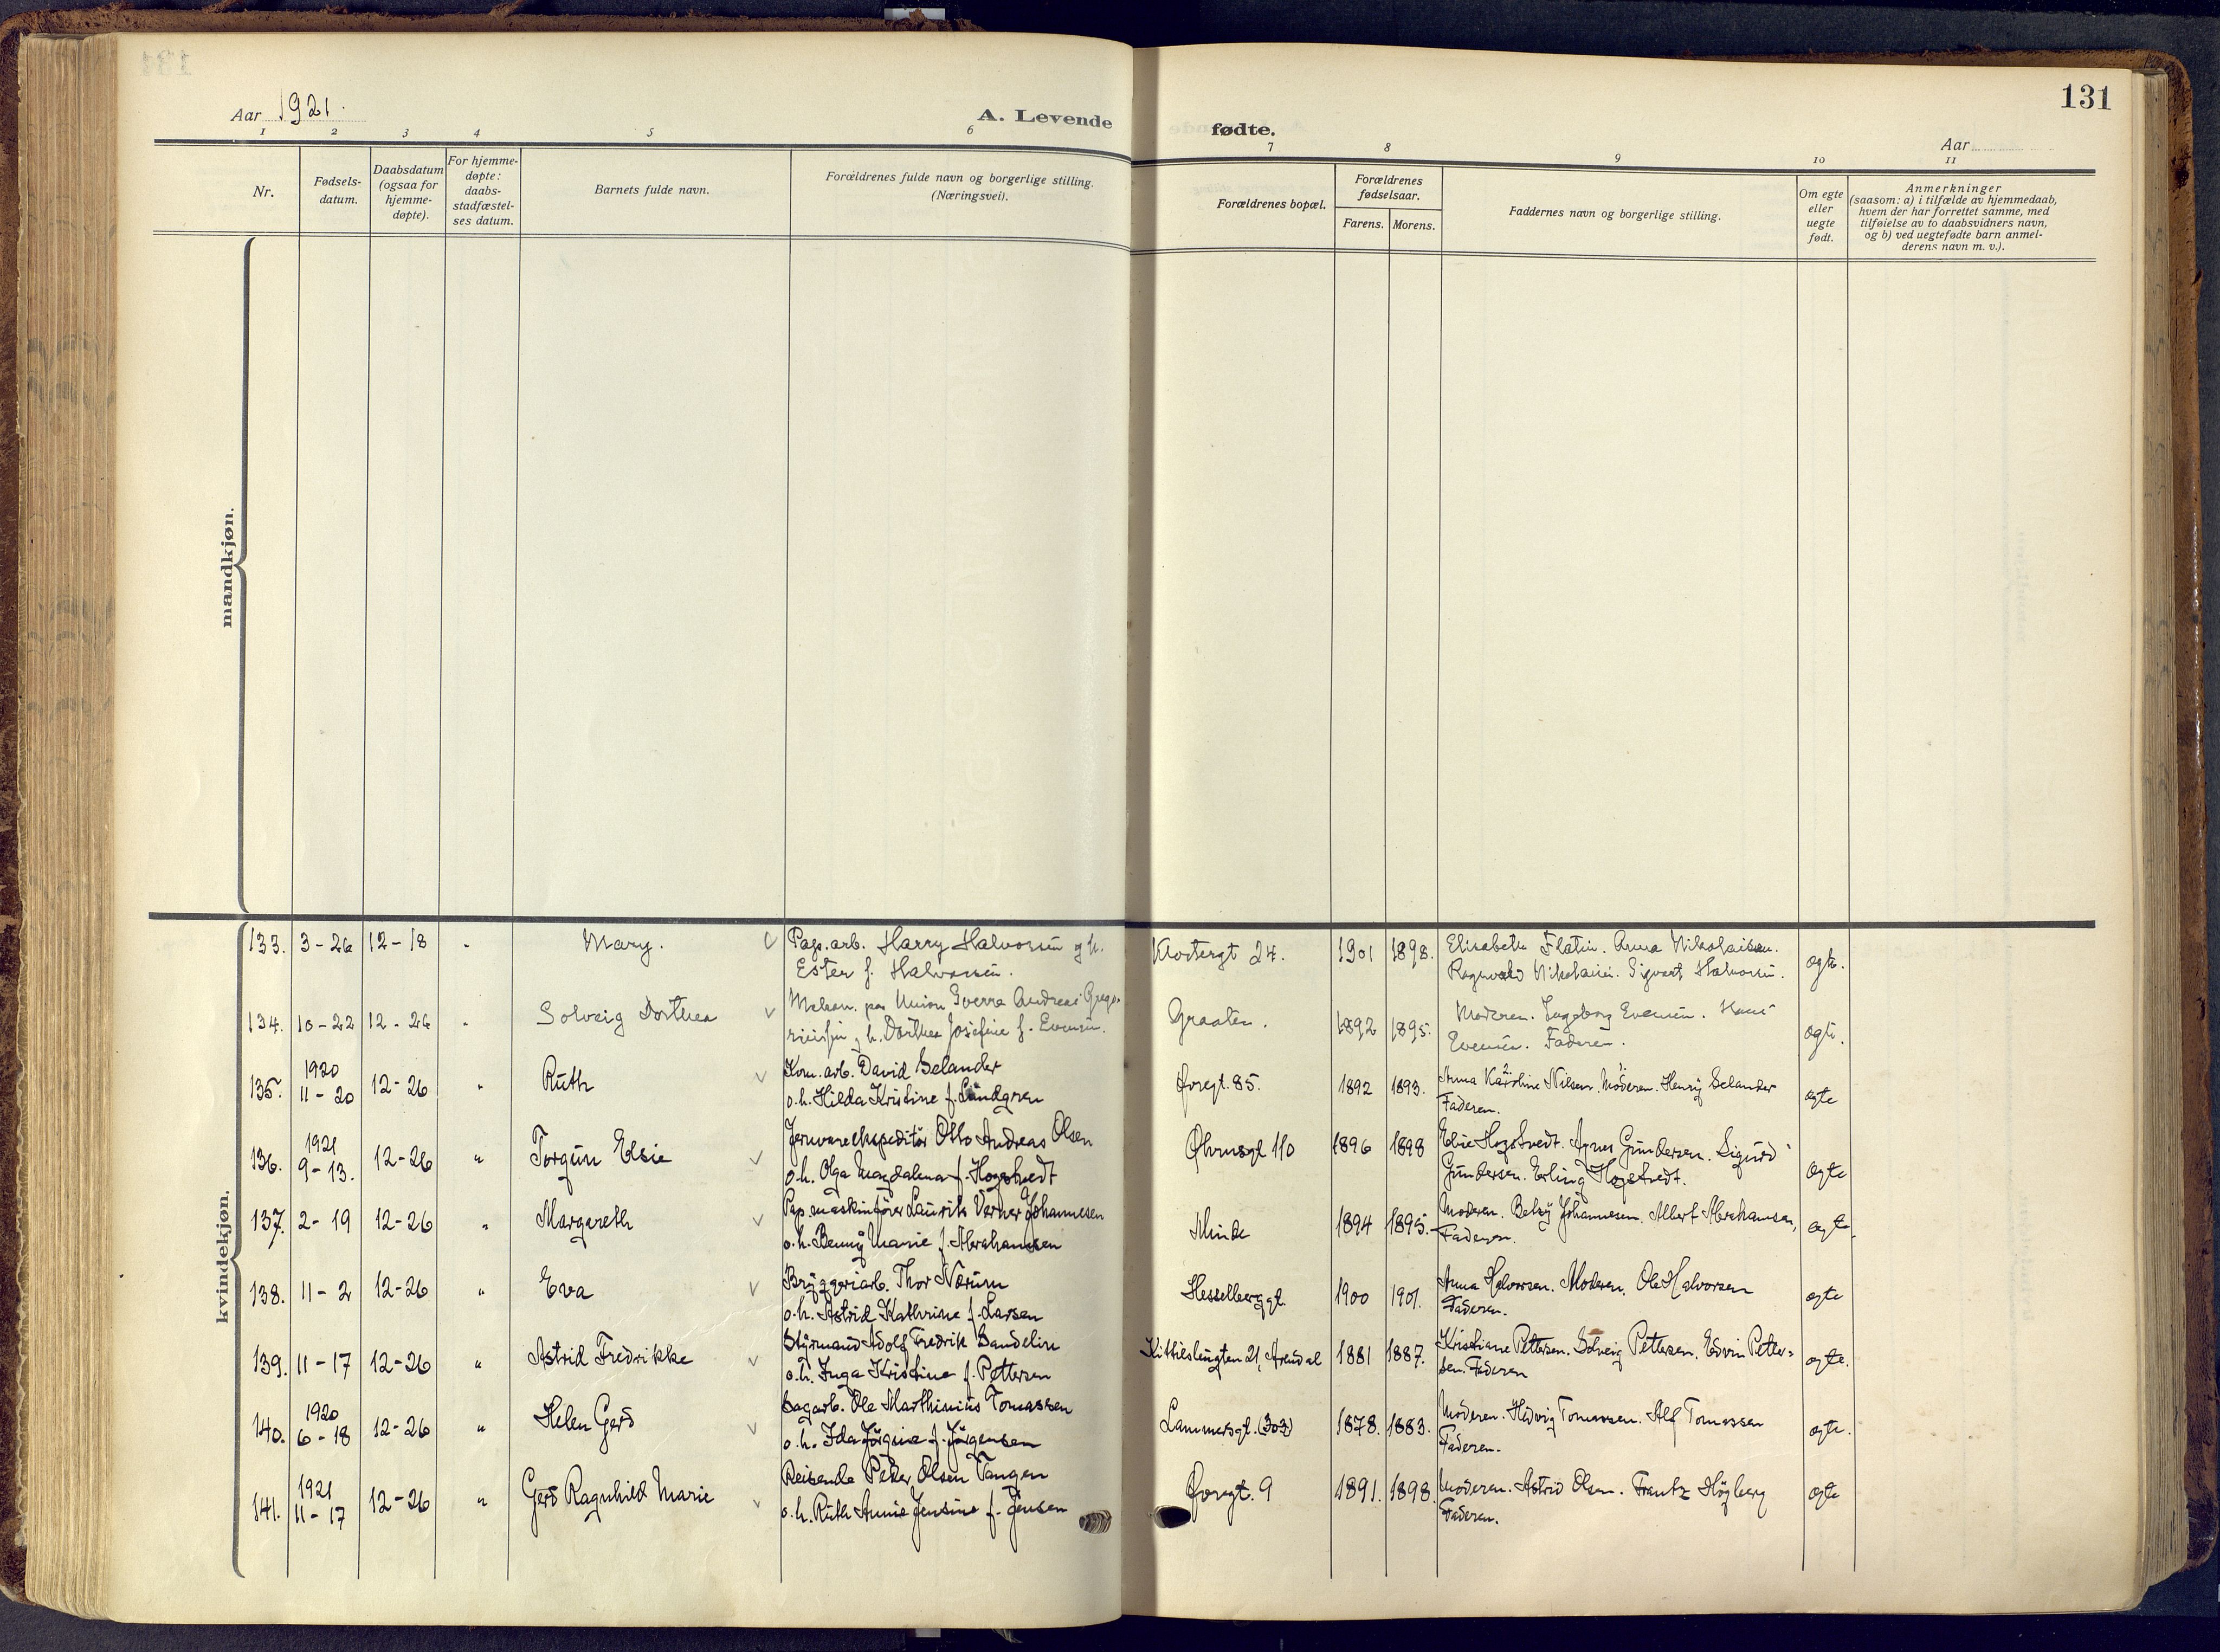 131
Aar 1921.
A. Levende
fødte.
Aar
1 2 3 4 5 6 7 8 9 10 11
Nr.
Fødsels-
datum.
Daabsdatum
(ogsaa for
hjemme-
døpte).
For hjemme-
døpte:
daabs-
stadfæstel-
ses datum.
Barnets fulde navn.
Forældrenes fulde navn og borgerlige stilling.
(Næringsvei).
Forældrenes bopæl.
Forældrenes
fødselsaar.
Farens. Morens.
Faddernes navn og borgerlige stilling.
Om egte
eller
uegte
født.
Anmerkninger
(saasom: a) i tilfælde av hjemmedaab,
hvem der har forrettet samme, med
tilføielse av to daabsvidners navn,
og b) ved uegtefødte barn anmel-
derens navn m. v.).
mandkjøn.
kvindekjøn.
133. 3-26 12-18 Mary. Pap.arb. Harry Halvorsen g h. Klostergt 24. 1901 1898. Elisabeth Flatin. Anna Nikolaisen.
Ester f. Halvorsen. Sigvart Halvorsen. egte.
134. 10-22 12-26 Solveig Dorthea Union Sverre Andreas Graaten. 1892 1895. Moderen. Ingeborg Evensen. Hans
h. Dorthea Josefine f. Evensen. Evensen. Faderen. egte.
135. 1920 11-20 12-26 " Ruth Kom. arb. David Selander Øvregt. 85. 1892 1893. Anna Karoline Nilsen. Moderen. Henry Selander
o.h. Hilda Kristine f. Lundgren Faderen. egte
136. 1921 9-13. 12-26 " Torgun Elsie Jernvareekspeditör Otto Andreas Olsen 110 1896 1898 Elsie Hogstvedt. Agnes Gundersen. Sigurd
o.h. Olga Magdalena f. Hogstvedt Gundersen. Erling Hogstvedt. egte
137. 2-19 12-26 " Margareth Pap.maskinförer Laurits Verner Johannesen Minde 1894 1895. Moderen. Betsy Johannesen. Albert Abrahamsen,
o.h. Benny Marie f. Abrahamsen Faderen. egte.
138. 11-2 12-26 " Eva Bryggeriarb. Thor Nærum Hesselberggt. 1900 1901. Anna Halvorsen. Moderen. Ole Halvorsen
o.h. Astrid Kathrine f. Larsen Faderen. egte
139. 11-17 12-26 " Astrid Fredrikke Styrmand Adolf Fredrik Sandelin Kittilsbugten 21, Arendal 1881 1887. Kristiane Pettersen. Solveig Pettersen. Edvin Petter-
o.h. Inga Kristine f. Pettersen sen. Faderen egte.
140. 1920 6-18 12-26 " Helen Gerd Sagarb. Ole Marthinius Tomassen Lammersgt. (303) 1878. 1883. Moderen. Hedvig Tomassen. Alf Tomassen
o.h. Ida Jörgine f. Jörgensen Faderen. egte.
141. 1921 11-17 12-26 " Gerd Ragnhild Marie Reisende Peder Olsen Tangen Øvregt. 9 1891. 1898. Moderen. Astrid Olsen. Frantz Högberg
o.h. Ruth Annie Jensine f. Jensen Faderen. egte